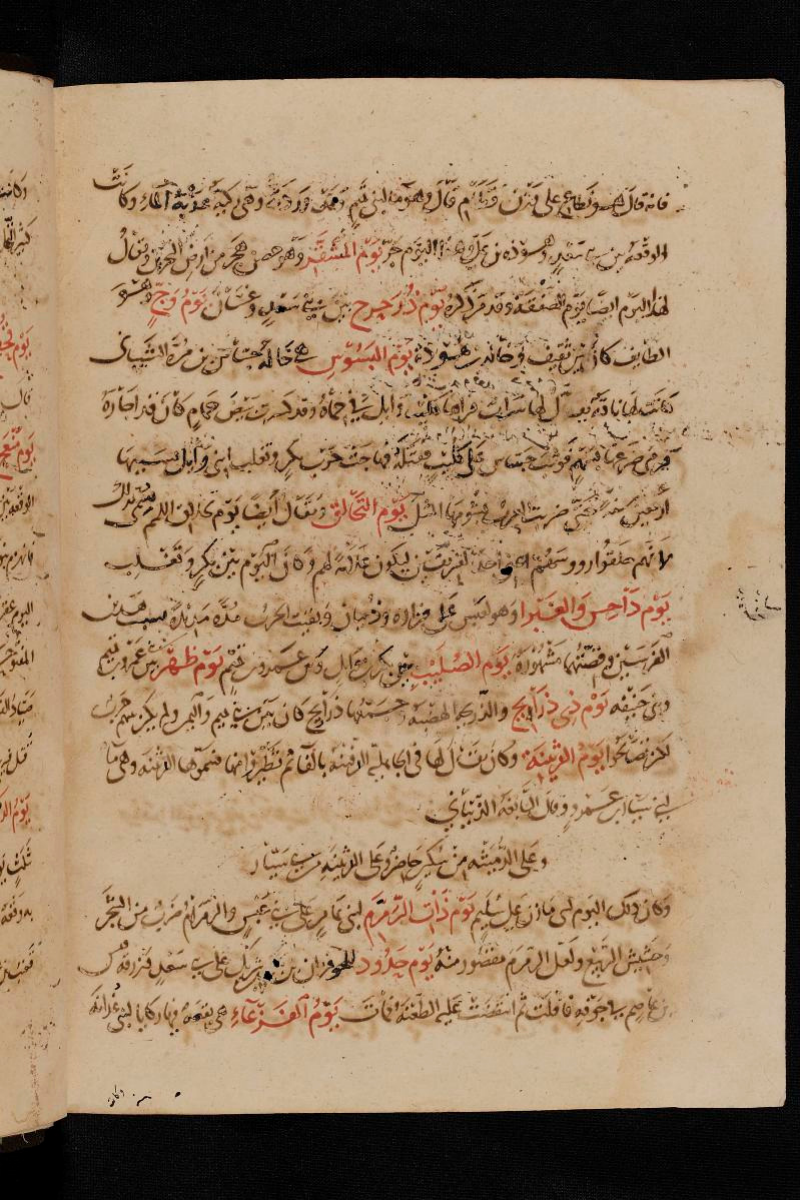 فانه قال هو على قرن قال وهو ما لبني تميم وهي ركية عذبة الماء وكانت
الوقعة بين بني سعد وهوذة بن علي وهذا اليوم جرّ يَوْم المُشقَّر وهو حصن هجر من ارض البحرين ويقال
لهذا اليوم ايضا يوم الصفقة وقد مر ذكره يَوْم ذو رحرح بين بني سعد وغسان يَوْم وَجّ وهو
الطايف كان بين ثقيف وخالد بن هوذة يَوْم البَسُوس هي خالة جساس بن مرة الشيباني
كانت لها ناقة يقال لها سراب فراها كليب وايل في حماه وقد كسرت بيض حمام كان قد اجاره
فرمى ضرعها بسهم فوثب جساس على كليب فقتله فهاجت حرب بكر وتغلب ابني وايل بسببها
اربعين سنة حتى ضربت العرب بشومها المثل يَوْم التَّحالق ويقال ايضا يوم تحلاق اللمم سمي بذلك
لانهم حلقوا روسهم احد الفريقين ليكون علامة لهم وكان اليوم بين بكر وتغلب
يَوْم دَاحِس والغَبْرا وهو لعبس على فزارة وذبيان وبقيت الحرب مدة مديدة بسبب هذين
الفرسين وقصتهما مشهورة يَوْم الصُّلَيب بين بكر بن وايل وبين عمرو بن تميم يَوْم ظَهْر بين عمرو بن تميم
وبني حنيفه يَوْم ذي ذَرَايح والذريحة الهضبة جمعتها ذرايح كان بين بني تميم واليمن ولم يكن بينهم حرب
لكن تصالحوا يَوْم الدَّثِينَة وكان يقال لها في الجاهلية الدفينة بالفا ثم تطيروا منها فسموها الدثنيه وهي ما
لبني سيار بن عمرو وقال النابغة الذبياني
وعلى الرميثة من سكين حاضر وعلى الدثينة من بني سيار
وكان ذلك اليوم لبني مازن على سليم يَوْم ذَات الرَّمْرَم لبني عامر على بني عبس والرمرام ضرب من الشجر
وحشيش الربيع ولعل الرمرم مقصور منه يَوْم جَدُود للحوفزان بن شريك على بني سعد فزرقه قيس
بن عاصم في جوفه فافلت ثم انتقضت عليه الطعنة فمات يَوْمُ القَرْعَاءِ هي بقعة فيها ركايا لبني غدانة
وكان